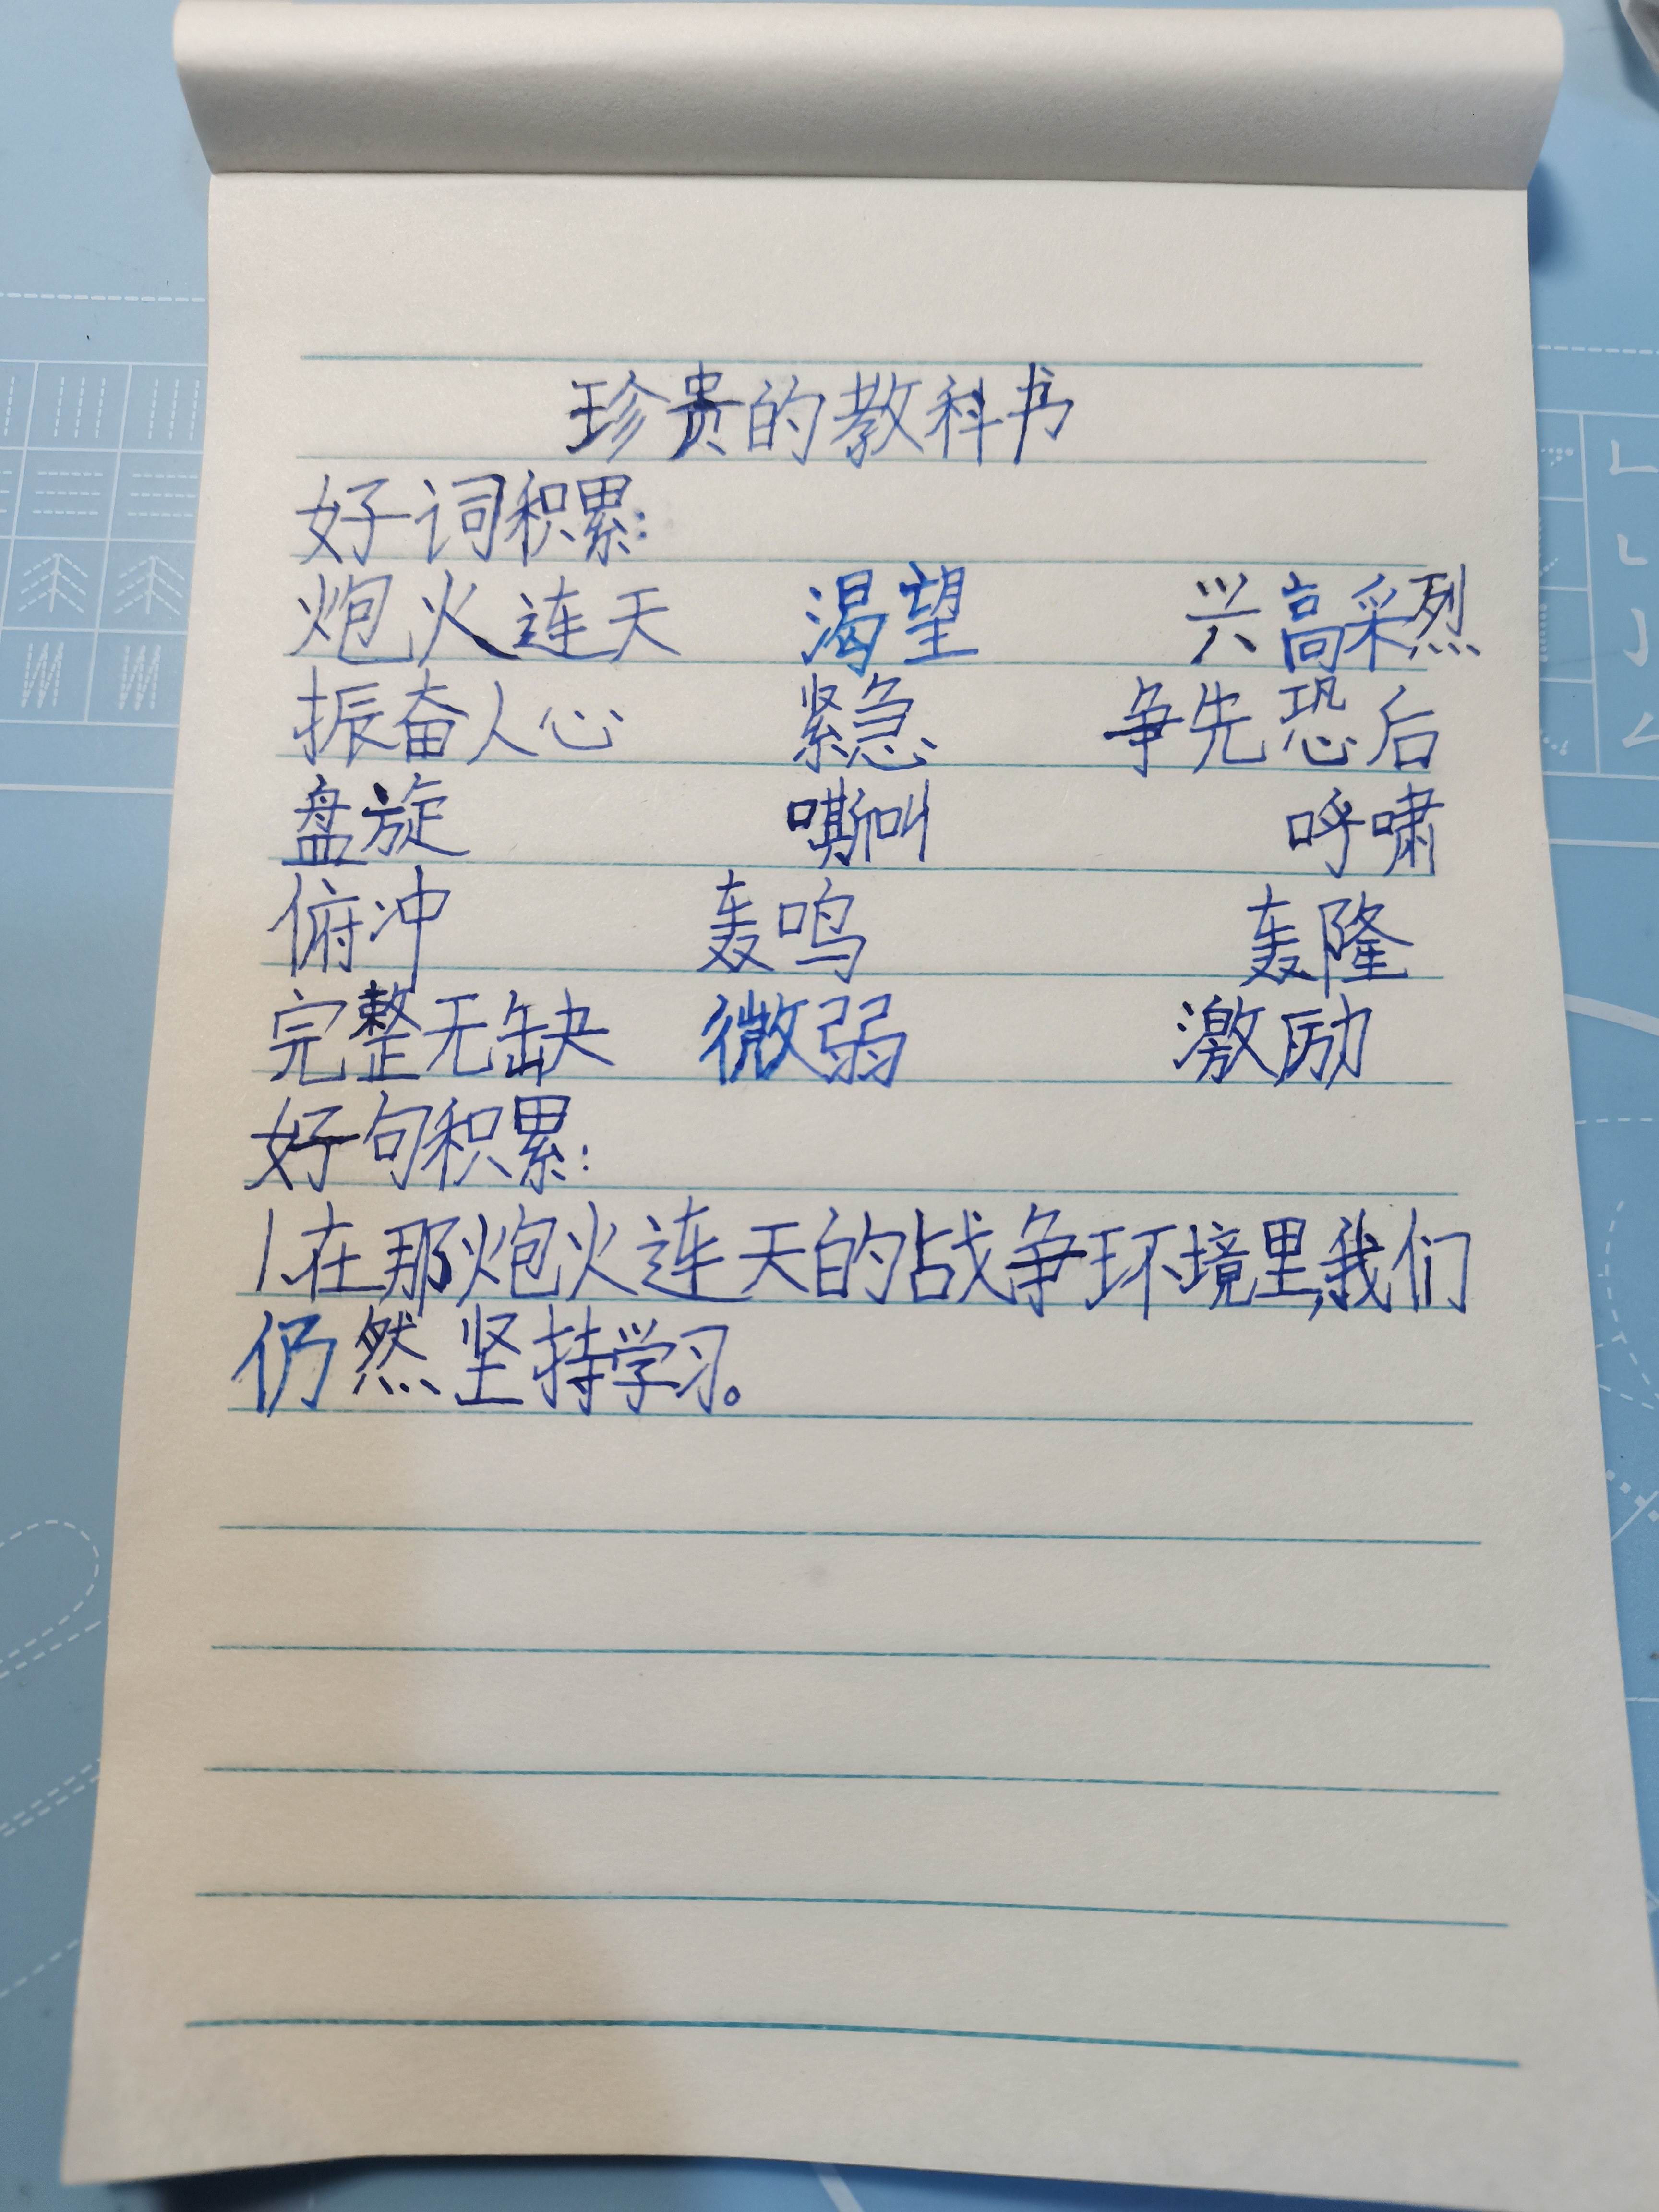 珍贵的教科书
好词积累:
炮火连天 渴望 兴高采烈
振奋人心 紧急 争先恐后
盘旋 嘶叫 呼啸
俯冲 轰鸣 轰隆
完整无缺 微弱 激励
好句积累:
1.在那炮火连天的战争环境里,我们
仍然坚持学习。